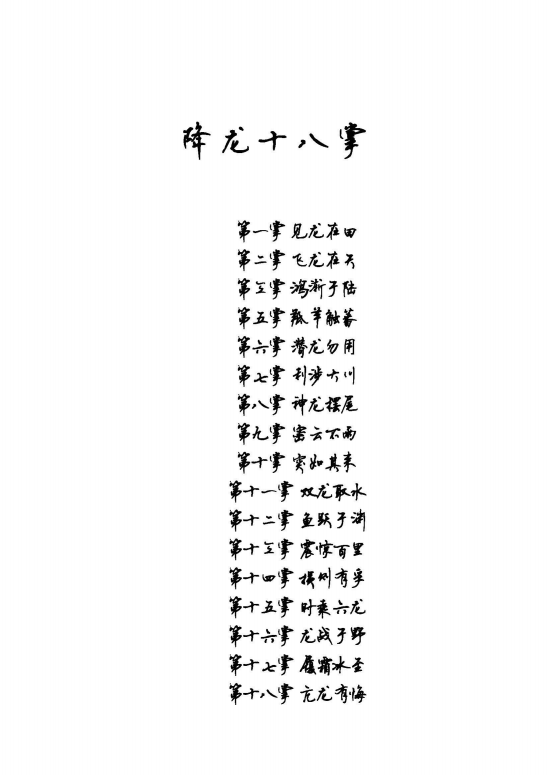 降龙十八掌
第一掌 见龙在田
第二掌 飞龙在天
第三掌 鸿渐于陆
第五掌 羝羊触蕃
第六掌 潜龙勿用
第七掌 利涉大川
第八掌 神龙摆尾
第九掌 密云不雨
第十掌 突如其来
第十一掌 双龙取水
第十二掌 鱼跃于渊
第十三掌 震惊百里
第十四掌 损则有孚
第十五掌 时乘六龙
第十六掌 龙战于野
第十七掌 履霜冰至
第十八掌 亢龙有悔